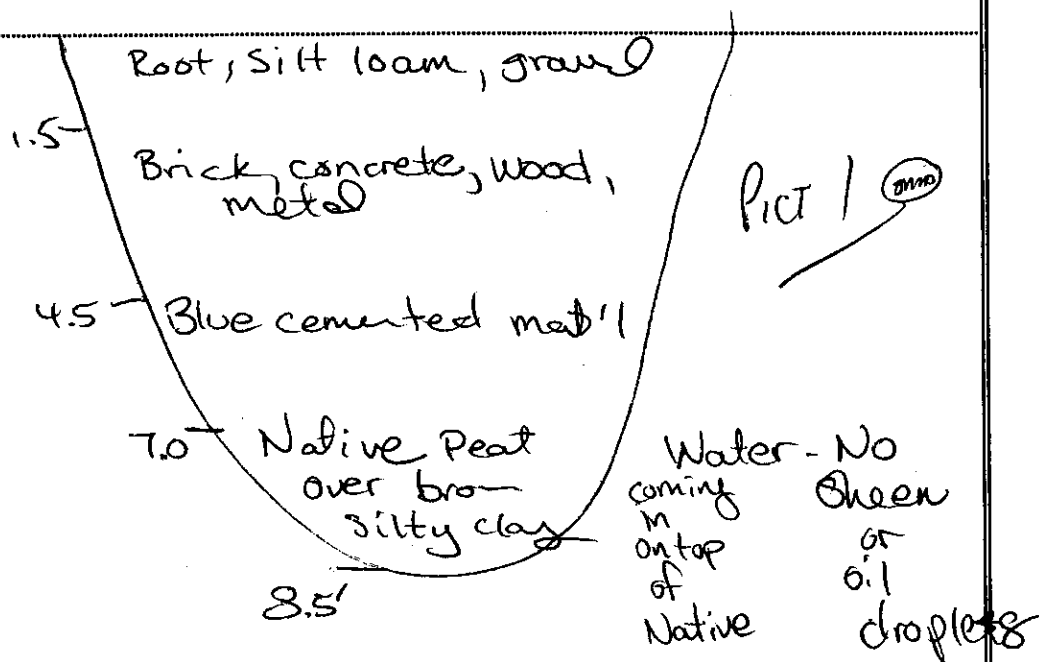 Root, Silt loam, gravel
1.5
Brick, concrete, wood,
metal
PICT 1
4.5
Blue cemented mat'l
7.0
Native Peat
over brown
silty clay
8.5'
Water - No
coming Sheen
in
on top or
of oil
Native droplets